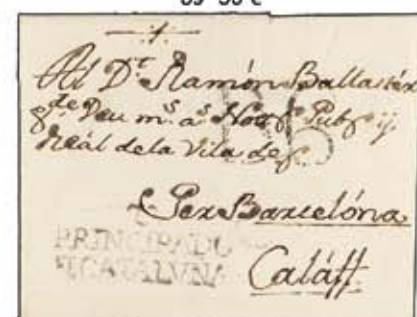 Al Dr. Ramón Ballaster
gde. Deu ms. as. Nott Pub y
Reál de la Vila de
Per Barcelóna
PRINCIPADO
CATALVNA
Caláff